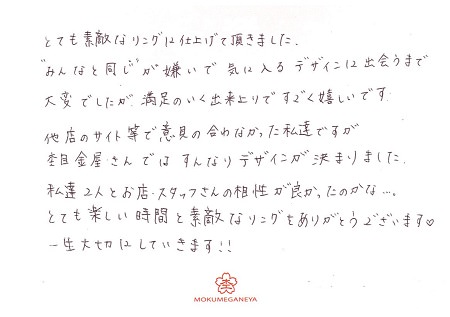 とても素敵なリングに仕上げて頂きました.
"みんなと同じ"が嫌いで 気に入る デザインに出会うまで
大変でしたが 満足のいく出来上りですごく嬉しいです
他店のサイト等で意見の合わなかった私達ですが
杢目金屋さんでは すんなりデザインが決まりました.
私達2人とお店・スタッフさんの相性が良かったのかな….
とても楽しい時間と素敵なリングをありがとうございます♡
一生大切にしていきます!!
杢
MOKUMEGANEYA